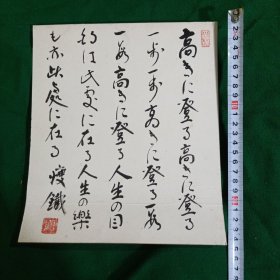 高きに登る高きに登る
一歩一歩高きに登る一歩
一歩高きに登る人生の目
的は此處に在る人生の樂
も亦此處に在る 瘦鐵